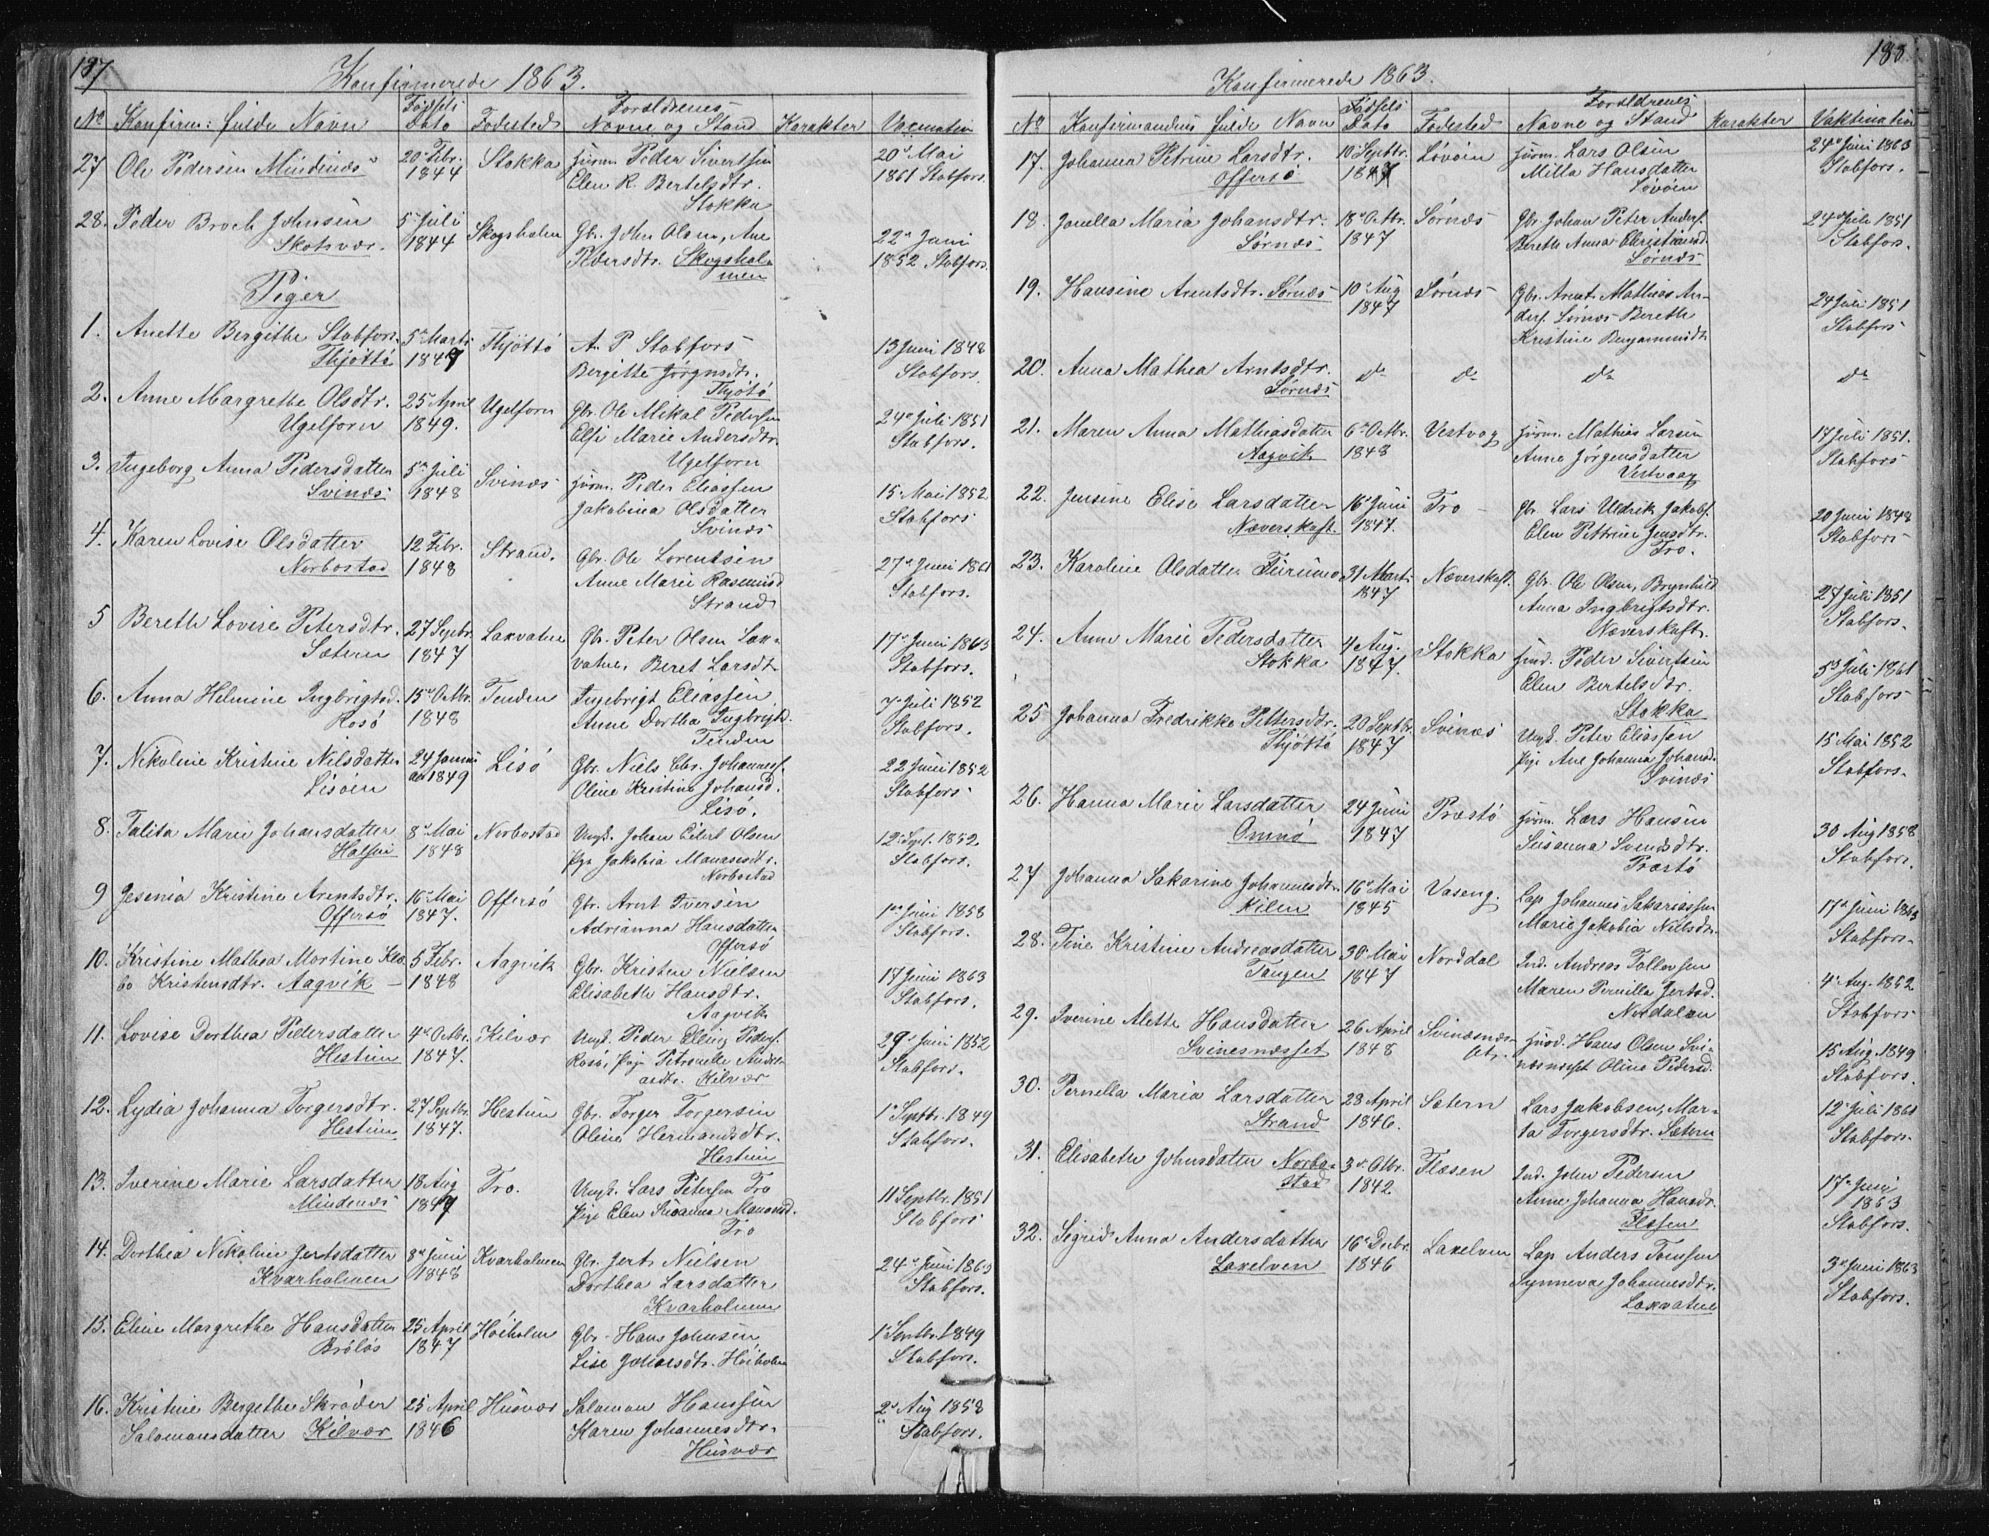 187
Konfirmerede 1863.
No Konfirm: fulde Navn Fødsels Dato Fødested Forældrenes Navne og Stand Karakter Vaccination
27 Ole Pedersen Mindenæs 20 Febr. 1844 Stokka Huusm. Peder Sivertsen 20 Mai 1861 Stabfors.
Elen K. Bertelsdtr.
Stokka
28. Peder Broch Johnsen 5 Juli 1844 Skogsholm Gbr. John Olsen, Ane 22 Juni 1852 Stabfors.
Skotsvær. Pedersdtr. Skogshol-
men
Piger
1. Anette Bergithe Stabfors. 5 Marts 1849 Thjøttø A. P. Stabfors 13 Juni 1848 Stabfors.
Thjøttø Bergitte Jørgnsdtr.
Thjøtø
2. Anne Margrethe Olsdtr. 25 April 1849. Ugelforn Gbr. Ole Mikal Pedersen 24 Juli 1851 Stabfors.
Ugelforn Else Marie Andersdtr.
Ugelforn
3. Ingeborg Anna Pedersdatter 5 Juli 1848 Svinæs Huusm. Peder Eliassen 15 Mai 1852 Stabfors
Svinæs Jakobina Olsdatter
Svinæs
4. Karen Lovise Olsdatter 12 Febr. 1848 Strand. Gbr. Ole Lorentsen 27 Juni 1861 Stabfors.
Norbostad Anne Marie Rasmusd
Strand
5 Berethe Lovise Petersdtr. 27 Septbr. 1847 Laxvatne Gbr. Peter Olsen Lax- 17 Juni 1863 Stabfors.
Sæteren vatne, Beret Larsdtr
6. Anna Helmine Ingbrigtsd. 15 Octbr. 1848 Tenden Ingebrigt Eliassen 7 Juli 1852 Stabfors.
Rosø Anne Dorthea Ingbrigtsd.
Tenden
7. Nikoline Kristine Nilsdatter 24 Januar 1849 Lisø Gbr. Niels Chr. Johanness. 22 Juni 1852 Stabfors
Lisøen Oline Kristine Johansd.
Lisø.
8. Talita Marie Johansdatter 8 Mai 1848 Norbostad Ungk. Johan Eilert Olsen 12 Sept. 1852 Stabfors.
Halsen Pige Jakobia Manasesdtr.
Norbostad
9 Jesenia Kristine Arentsdtr. 16 Mai 1847. Offersø Gbr. Arnt Iversen 1 Juni 1858 Stabfors.
Offersø Adrianna Hansdatter
Offersø
10. Kristine Mathea Martine Klæ- 5 Febr. 1848 Aagvik Gbr. Kristen Nielsen 17 Juni 1863 Stabfors.
bo Kristensdtr. Aagvik Elisabeth Hansdtr.
Aagvik
11. Lovise Dorthea Pedersdatter 4 Octbr. 1847. Kilvær Ungk. Peder Elling Peders. 29 Juni 1852 Stabfors.
Hestun Rosø, Pige Petronelle Ander-
asdtr. Kilvær
12. Lydia Johanna Torgersdtr. 27 Septbr. 1847. Hestun Gbr. Torger Torgersen 1 Septbr. 1849 Stabfors.
Hestun Oline Hermansdtr.
Hestun
13. Iverine Marie Larsdatter 18 Aug 1849 Tro. Ungk. Lars Petersen Tro 11 Septbr. 1851 Stabfors
Mindenæs Pige Elen Susanna Manasd.
Tro
14. Dorthea Nikoline Jertsdatter 8 Juni 1848 Kvarholmen Gbr. Jert Nielsen 24 Juni 1863 Stabfors.
Kvarholmen Dorthea Larsdatter
Kvarholmen
15. Eline Margrethe Hansdatter 25 April 1847 Høiholm Gbr. Hans Johnsen 1 Septbr. 1849 Stabfors.
Brøløs Lise Johansdtr. Høiholm
16. Kristine Bergethe Skrøder 25 April 1846 Husvær Salomon Hanssen 2 Aug 1858 Stabfors.
Salomonsdatter Kilvær Karen Johannesdtr.
Husvær
188
Konfirmerede 1863.
No Konfirmandens fulde Navn Fødsels Dato Fødested Forældrenes Navne og Stand Karakter Vaktination
17. Johanna Petrine Larsdtr. 10 Septbr. 1847 Løvøen Huusm. Lars Olsen 24 Juni 1863 Stabfors.
Offersø Milla Hansdatter
Løvøen
18. Jonella Maria Johansdtr. 18 Octbr. 1847 Sørnæs Gbr. Johan Peter Anders. 24 Juli 1851 Stabfors.
Sørnæs Berethe Anna Christiansd.
Sørnæs
19. Hansine Arentsdtr. Sørnæs 10 Aug 1847 Sørnæs Gbr. Arent Mathias An- 24 Juli 1851 Stabfors
ders. Sørnæs Berethe
Kristine Benjaminsdtr
20. Anna Mathea Arntsdtr. do do do do
Sørnæs
21. Maren Anna Mathiasdatter 6 Octbr. 1848 Vestvog Huusm. Mathias Larsen 17 Juli 1851. Stabfors
Aagvik Anne Jørgensdatter
Vestvaag
22. Jensine Elise Larsdatter 16 Juni 1847. Tro Gbr. Lars Uldrik Jakobs. 20 Juni 1848 Stabfors
Næverskaft. Elen Pettrine Jensdtr.
Tro.
23. Karoline Olsdatter Furumo 31 Marts 1847 Næverskaft. Gbr. Ole Olsen, Brynhild 27 Juli 1851 Stabfors.
Anna Ingbrigtsdtr.
Næverskaft.
24. Anne Marie Pedersdatter 4 Aug. 1847. Stokka Huusm. Peder Sivertsen 5 Juli 1861 Stabfors
Stokka Elen Bertelsdtr.
Stokka
25 Johanna Fredrikke Pettersdtr. 20 Septbr. 1847 Svinæs Ungk. Peter Eliassen 15 Mai 1852 Stabfors.
Thjøttø Pige Ane Johanna Johansd.
Svinæs
26. Hanna Marie Larsdatter 24 Juni 1847 Præstø Huusm. Lars Hansen 30 Aug 1858 Stabfors.
Omnø Susanna Svendsdtr.
Præstø
27 Johanna Sakarine Johannesdtr. 16 Mai 1845 Vaseng. Lap Johannes Sakariassen 17 Juni 1863 Stabfors.
Kilen Marie Jakobia Nilsdtr.
28. Tine Kristine Andreasdatter 30 Mai 1847 Norddal Ind. Andreas Tollevsen 4 Aug. 1852 Stabfors
Tangen Maren Pernilla Jertsd.
Nordalen
29. Iverine Alette Hansdatter 26 April 1848 Svinæsnæs- set. Huusm. Hans Olsen Svi- 15 Aug. 1849 Stabfors.
Svinesnæsset næsnæset Olina Pedersd.
30. Pernella Maria Larsdatter 28 April 1846. Sætern Lars Jakobsen, Mar- 12 Juli 1861 Stabfors.
Strand ta Torgersdtr. Sætern
31. Elisabeth Johnsdatter Norbo- 3 Octbr. 1842 Flæsen Ind. John Pedersen 17 Juni 1863 Stabfors.
stad Anne Johanna Hansdtr.
Flæsen
32. Sigrid Anna Andersdatter 16 Decbr. 1846 Laxelven Lap Anders Tomsen 3 Juni 1863 Stabfors.
Laxelven Synneva Johannesdtr.
Laxvatne